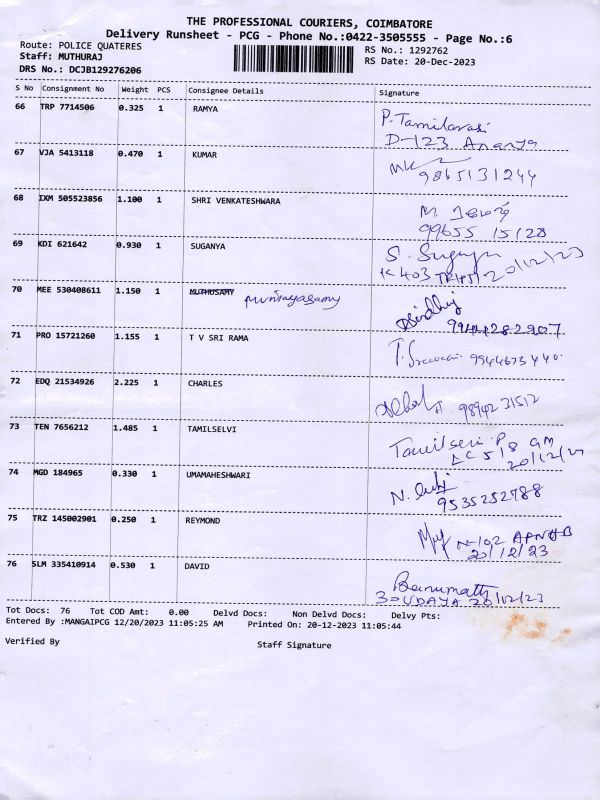 THE PROFESSIONAL COURIERS, COIMBATORE
Delivery Runsheet - PCG - Phone No.:0422-3505555 - Page No.:6
Route: POLICE QUATERES RS No.: 1292762
Staff: MUTHURAJ RS Date: 20-Dec-2023
DRS No.: DCJB129276206
S No Consignment No Weight PCS Consignee Details Signature
66 TRP 7714506 0.325 1 RAMYA P. Tamilarasi
D-123 Ananya
67 VJA 5413118 0.470 1 KUMAR
9865131244
68 IXM 505523856 1.100 1 SHRI VENKATESHWARA M.
99655 15128
69 KDI 621642 0.930 1 SUGANYA S. Suganya
K 403 20/12/23
70 MEE 530408611 1.150 1 MUTHUSAMY Muniyasamy
9944282907
71 PRO 15721260 1.155 1 T V SRI RAMA T. 9944673440
72 EDQ 21534926 2.225 1 CHARLES 9894231512
73 TEN 7656212 1.485 1 TAMILSELVI Tamilselvi P
20/12/23
74 MGD 184965 0.330 1 UMAMAHESHWARI N.
9535252788
75 TRZ 145002901 0.250 1 REYMOND N-102
20/12/23
76 SLM 335410914 0.530 1 DAVID Banumathi
30 UDAYA 20/12/23
Tot Docs: 76 Tot COD Amt: 0.00 Delvd Docs: Non Delvd Docs: Delvy Pts:
Entered By :MANGAIPCG 12/20/2023 11:05:25 AM Printed On: 20-12-2023 11:05:44
Verified By Staff Signature